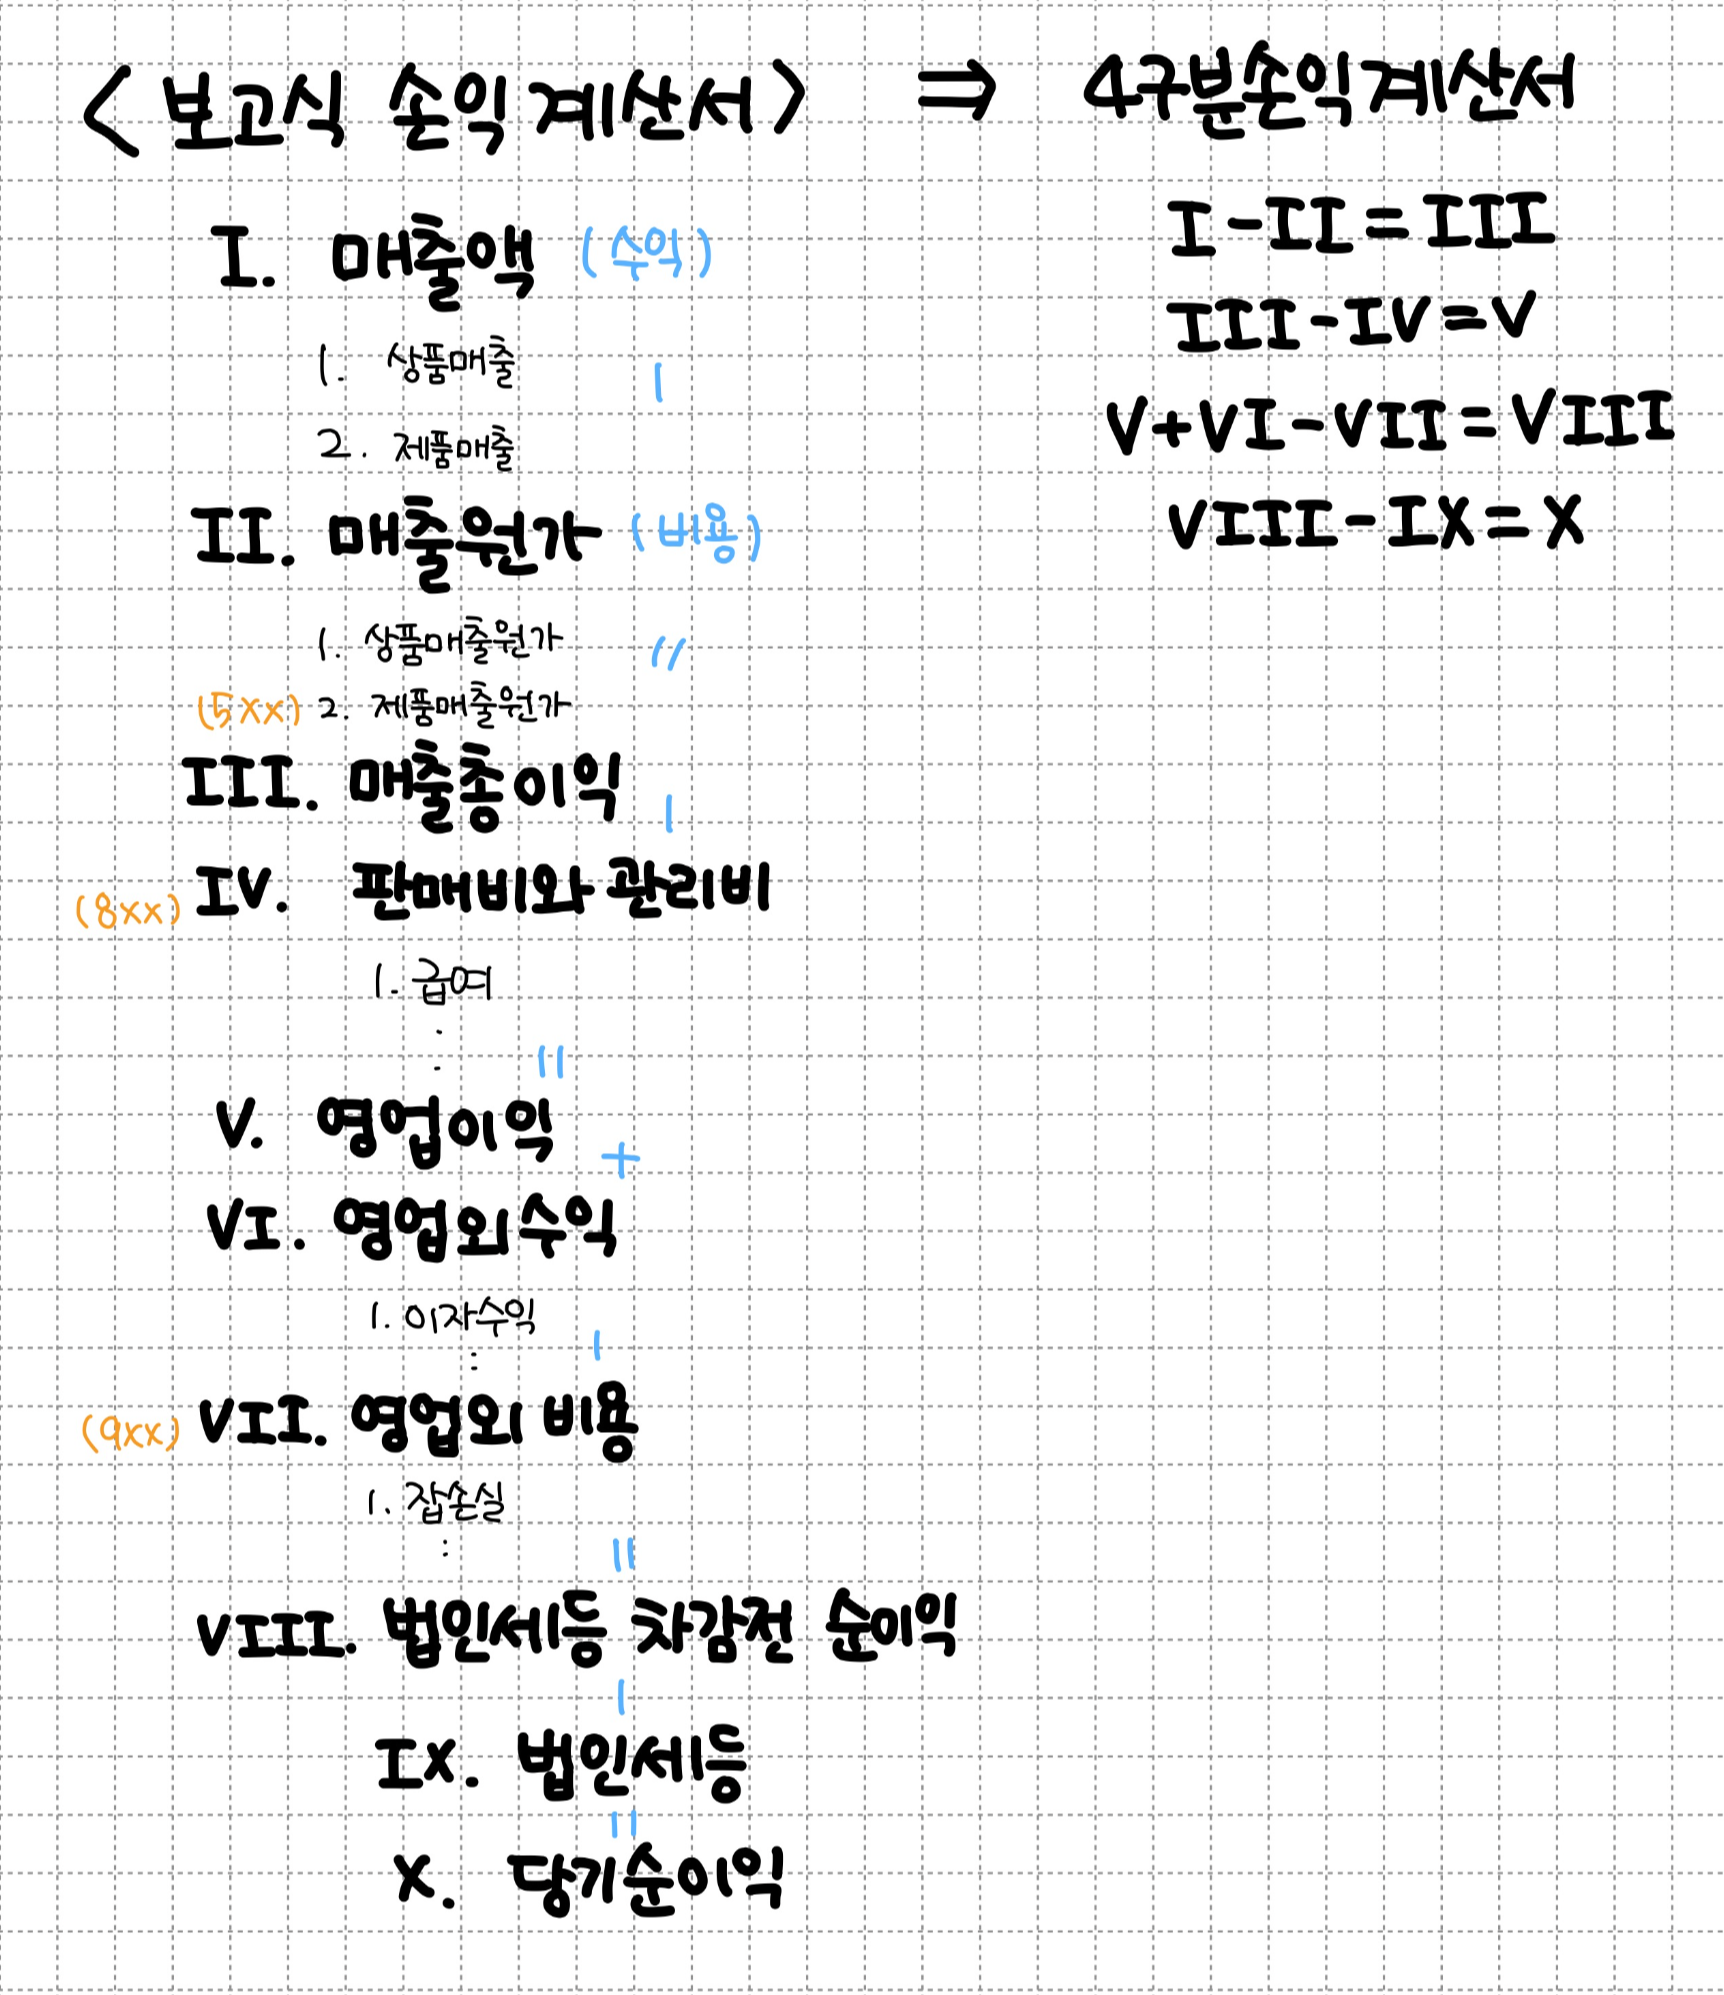 <보고식 손익계산서> ⇒ 4구분손익계산서
I. 매출액 (수익)
1. 상품매출
2. 제품매출
II. 매출원가 (비용)
1. 상품매출원가
(5xx) 2. 제품매출원가
III. 매출총이익
(8xx) IV. 판매비와 관리비
1. 급여
:
V. 영업이익
+
VI. 영업외수익
1. 이자수익
:
(9xx) VII. 영업외 비용
1. 잡손실
:
VIII. 법인세등 차감전 순이익
IX. 법인세등
X. 당기순이익
I-II=III
III-IV=V
V+VI-VII=VIII
VIII-IX=X